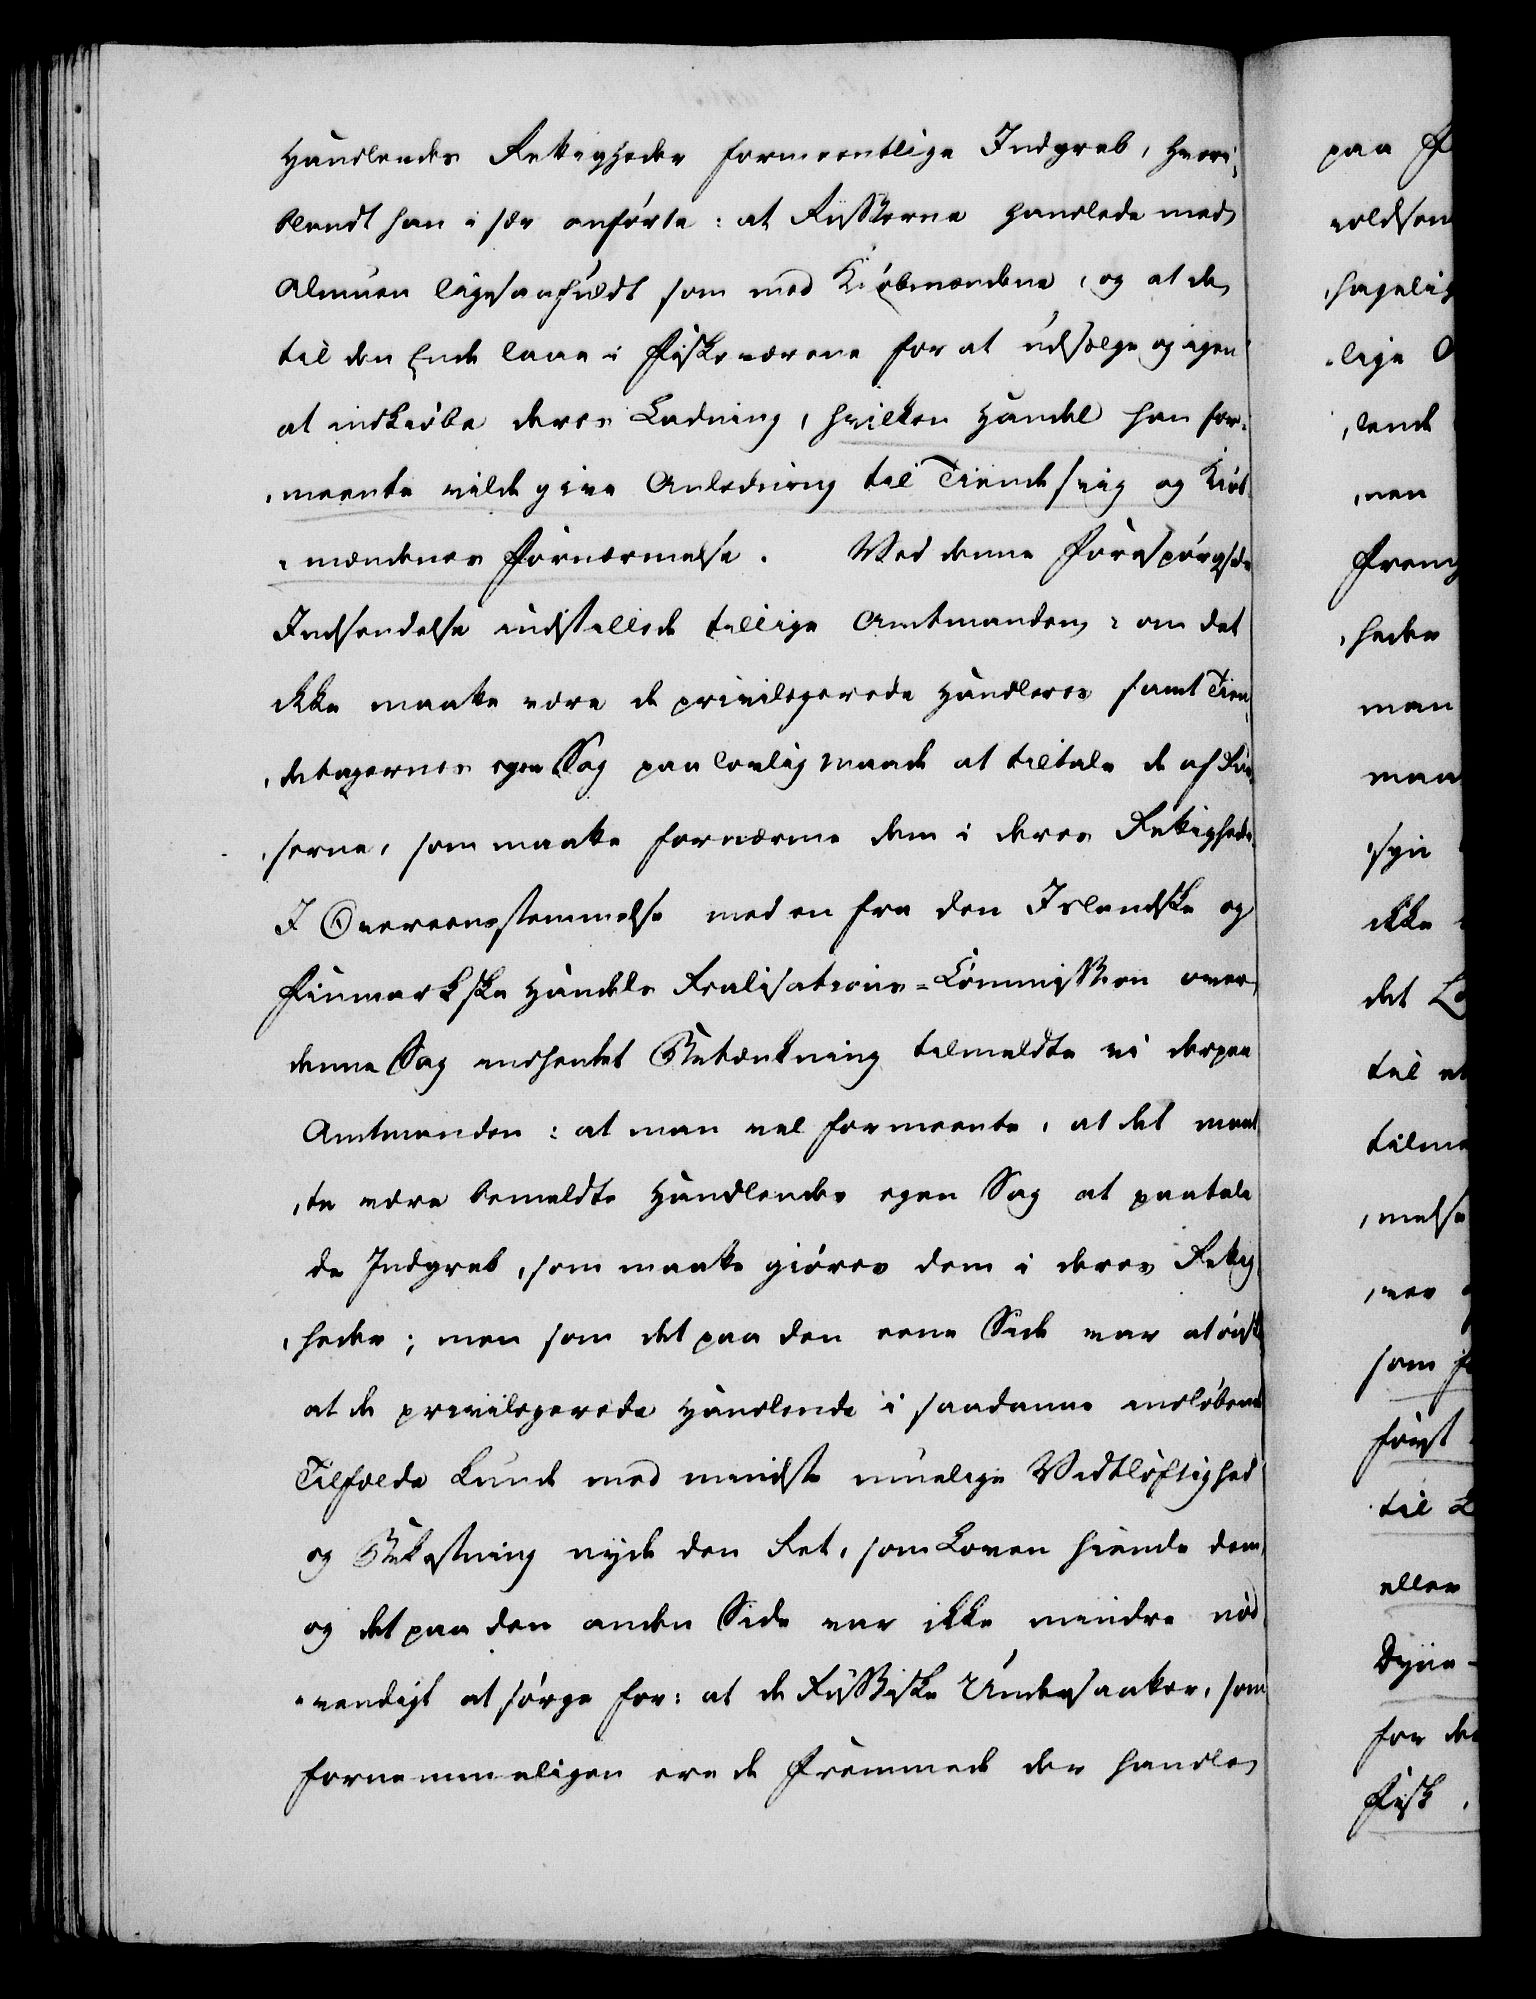 Handlendes Rettigheder formeentlige Indgreb, hvori,
blandt han i sær anförte: at Russerne handlede med
Almuen ligesaafuldt som med Kiöbmændene, og at de
til den Ende laae i Fiskeværene for at udsælge og igien
at indkiöbe deres Ladning, hvilken Handel han for,
,meente vilde give Anledning til Tiendesvig og Kiöb,
,mændenes Fornærmelse. Ved denne Forespörgsels
Indsendelse indstillede tillige Amtmanden: om det
ikke maatte være de privilegerede Handleres samt Tien,
,detagernes egen Sag paa lovlig Maade at tiltale de af Rus,
,serne, som maatte fornærme dem i deres Rettigheder.
I Overeensstemmelse med en fra den Islandske og
Finmarkske Handels Realisations-Commission over
denne Sag indhentet Betænkning tilmeldte vi derpaa
Amtmanden: at man vel formeente, at det maat
,te være bemeldte Handlendes egen Sag at paatale
de Indgreb, som maatte giöres dem i deres Rettig,
,heder; men som det paa den eene Side var at önske
at de privilegerede Handlende i saadanne indlöbende
Tilfælde kunde med mindste muelige Vidtlöftighed
og Bekostning nyde den Ret, som Loven hiemler dem,
og det paa den anden Side var ikke mindre nöd,
,vendigt at sörge for: at de Russiske Undersaatter, som
fornemmeligen ere de Fremmede der handle
paa
,hagelig
,lige
,lende
,heder
man
ikke
det
til
som
först
til
eller
for
Fisk,